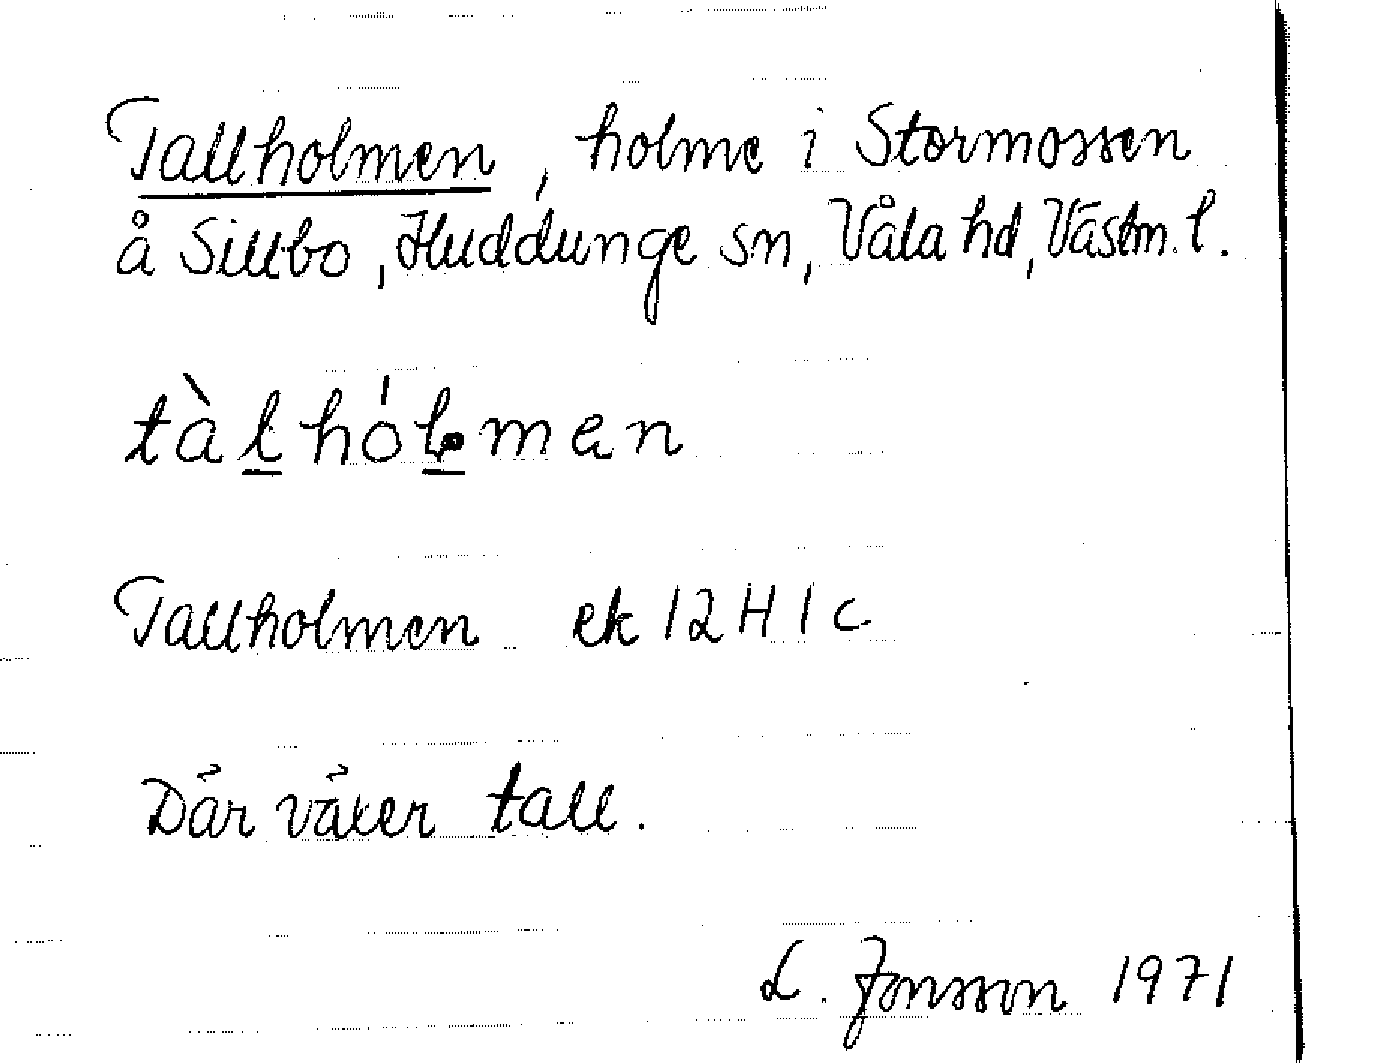 Tallholmen, holme i Stormossen
å Sillbo, Huddunge sn, Våla hd, Västm. l.
tàlhólmen
Tallholmen ek 12 H 1 c
Där växer tall.
L. Jonsson 1971